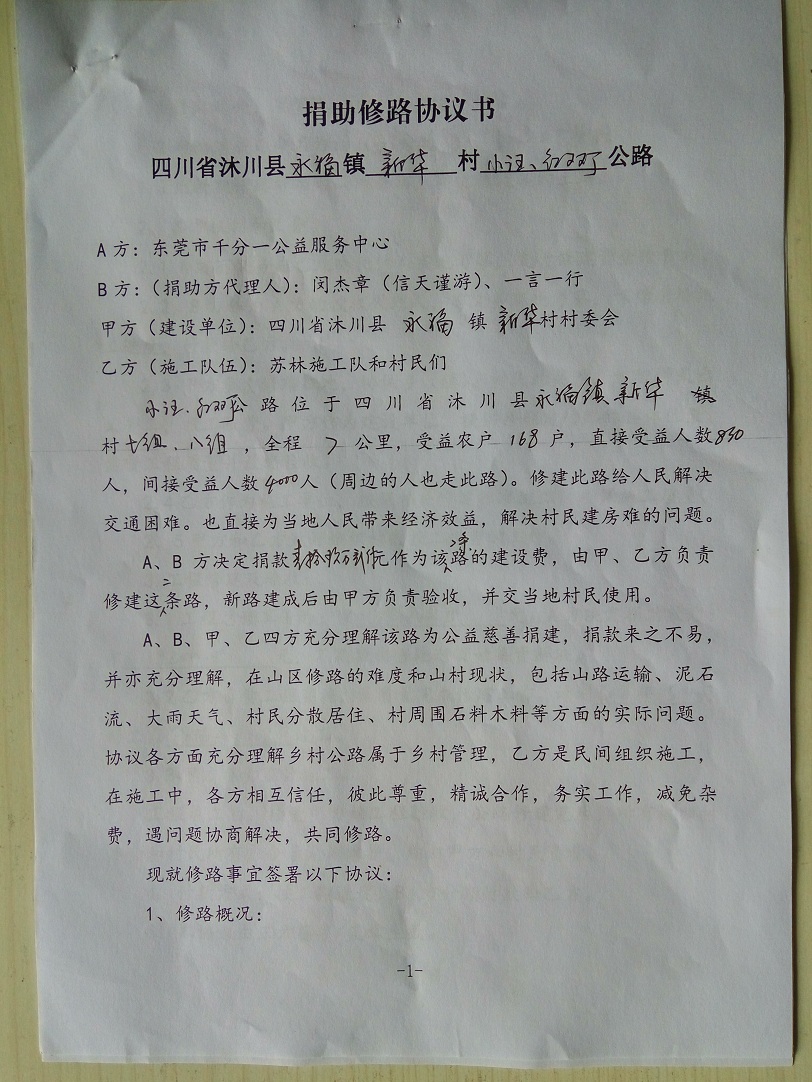 捐助修路协议书
四川省沐川县永福镇 新华 村 公路
A 方：东莞市千分一公益服务中心
B 方：（捐助方代理人）：闵杰章（信天谨游）、一言一行
甲方（建设单位）：四川省沐川县 永福 镇 新华村村委会
乙方（施工队伍）：苏林施工队和村民们
公路位于四川省沐川县永福镇新华 镇
村七组、八组，全程 7 公里，受益农户 168 户，直接受益人数830
人，间接受益人数4000人（周边的人也走此路）。修建此路给人民解决
交通困难。也直接为当地人民带来经济效益，解决村民建房难的问题。
A、B 方决定捐款元作为该二条路的建设费，由甲、乙方负责
修建这二条路，新路建成后由甲方负责验收，并交当地村民使用。
A、B、甲、乙四方充分理解该路为公益慈善捐建，捐款来之不易，
并亦充分理解，在山区修路的难度和山村现状，包括山路运输、泥石
流、大雨天气、村民分散居住、村周围石料木料等方面的实际问题。
协议各方面充分理解乡村公路属于乡村管理，乙方是民间组织施工，
在施工中，各方相互信任，彼此尊重，精诚合作，务实工作，减免杂
费，遇问题协商解决，共同修路。
现就修路事宜签署以下协议：
1、修路概况：
-1-